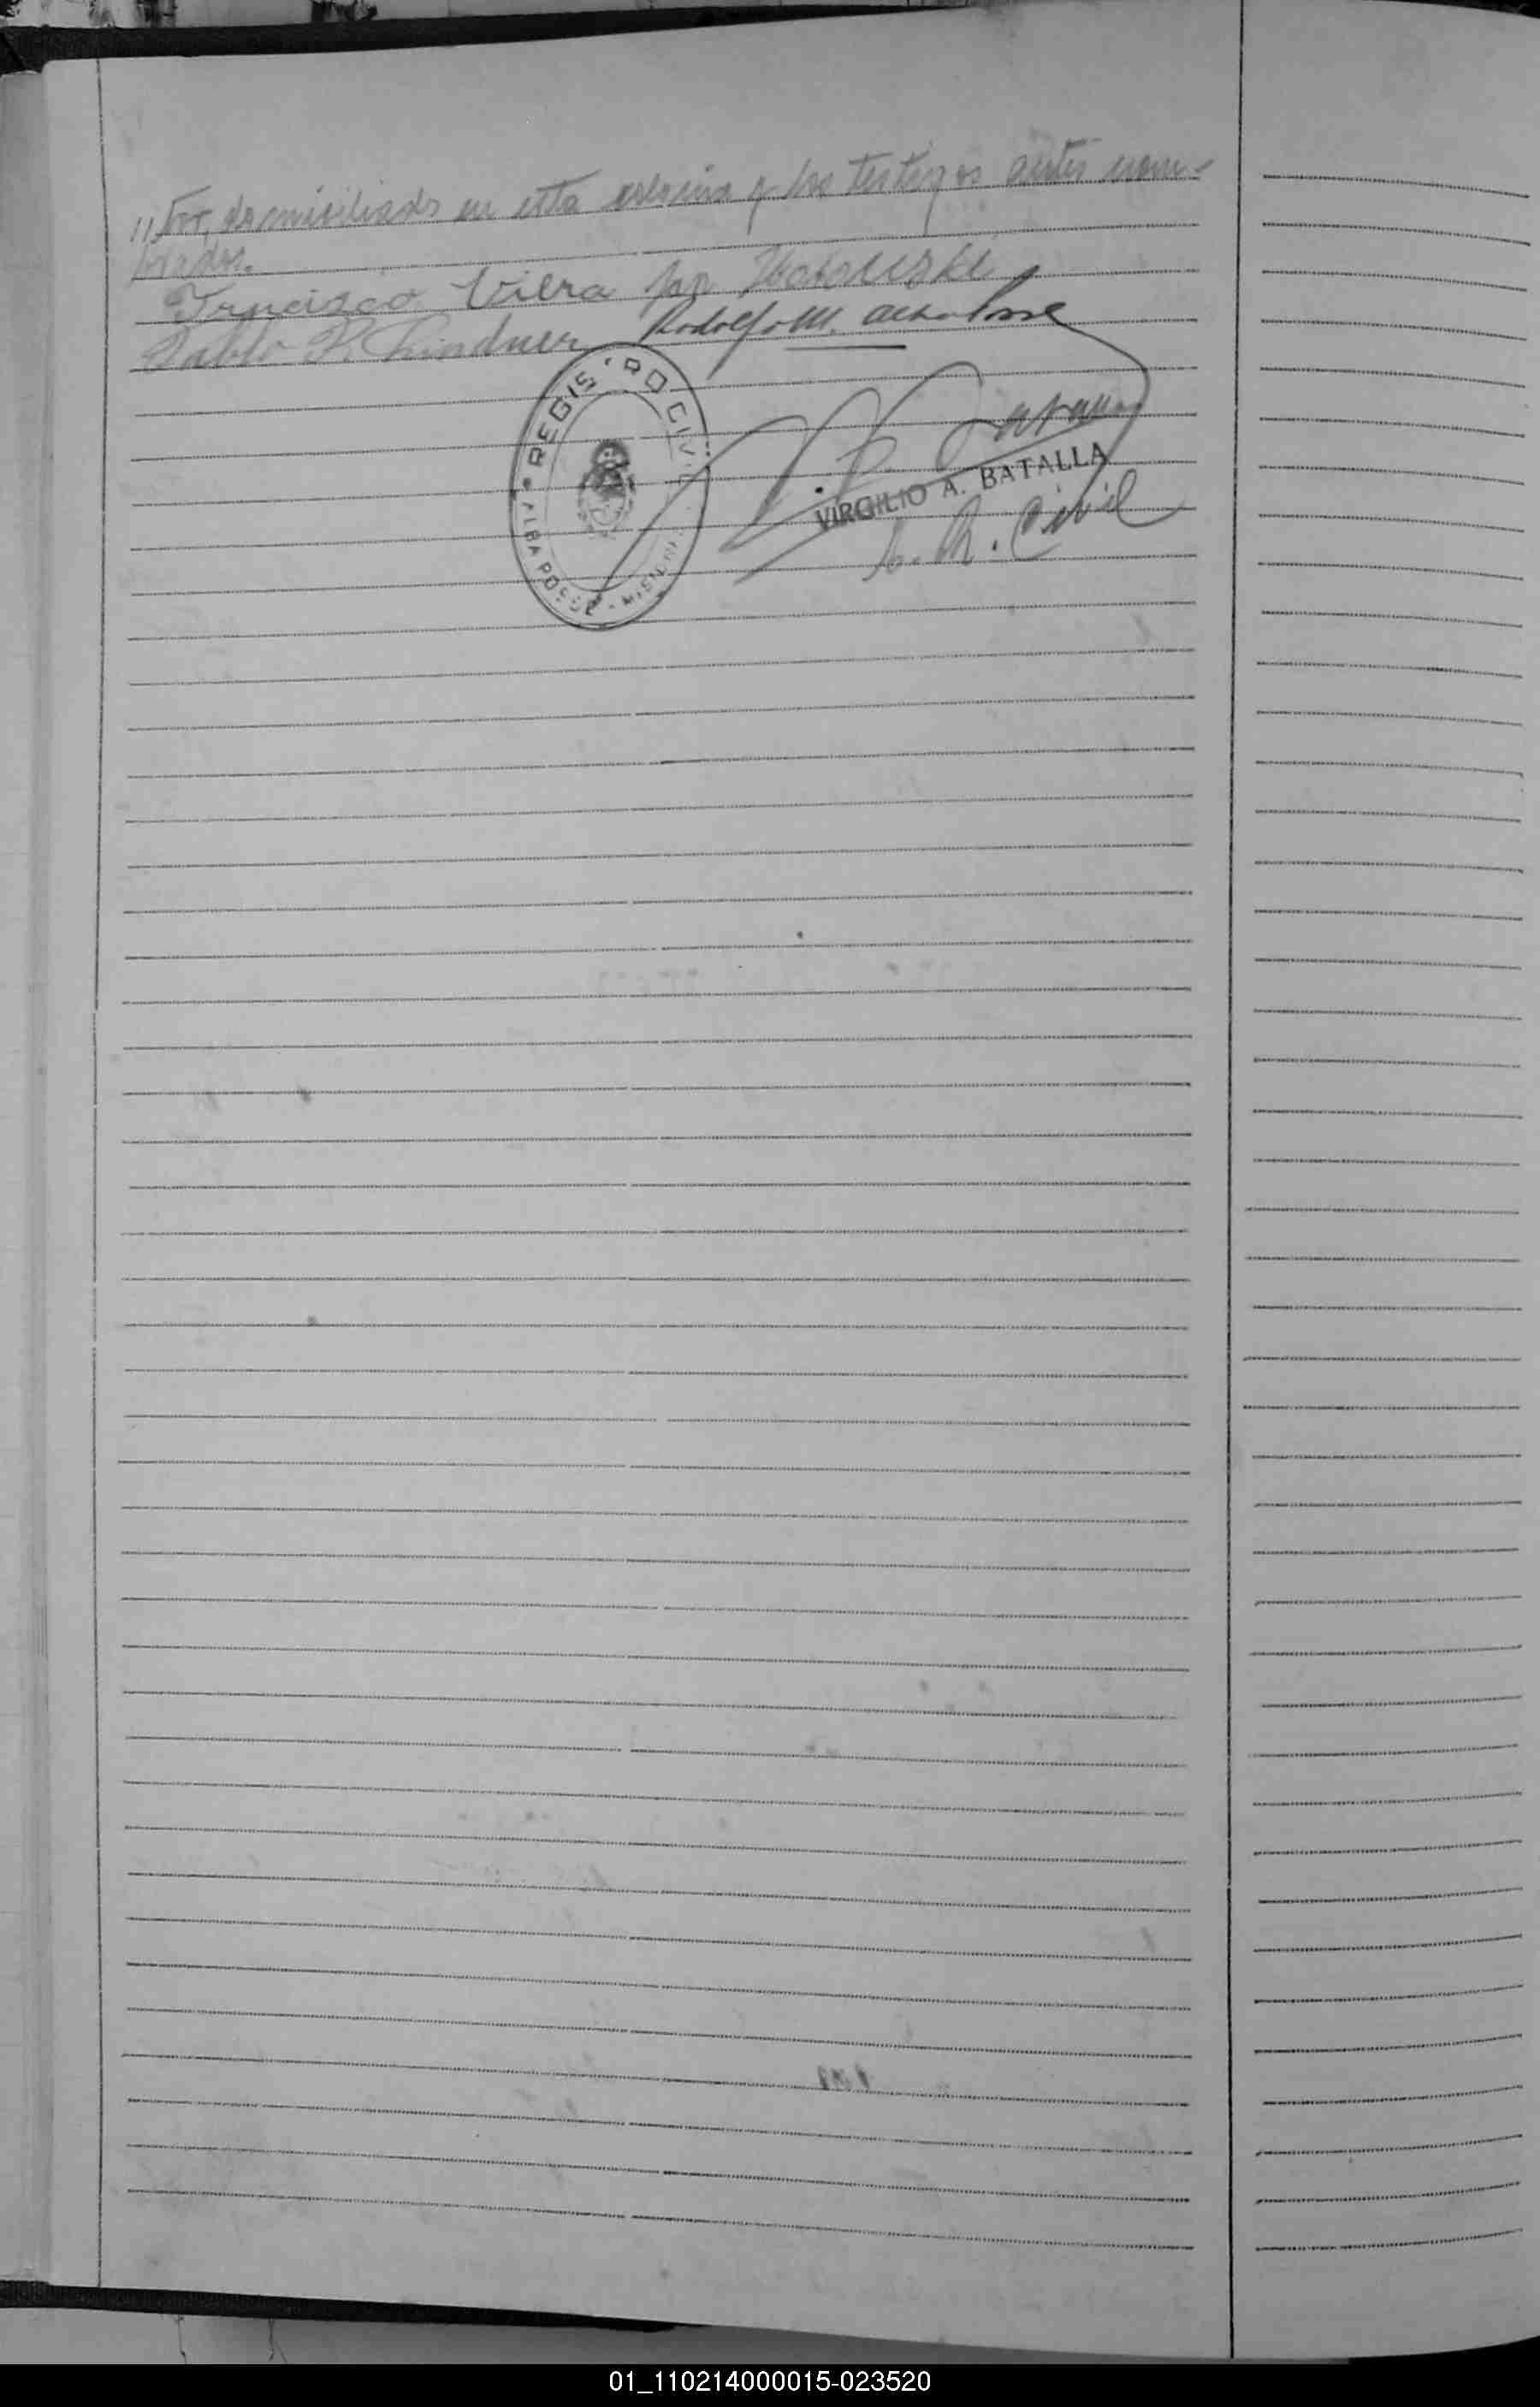 domiciliado en esta colonia y los testigos antes nom-
brados.
Francisco Viera Jan
Pablo P. Lindner Rodolfo M.
REGISTRO CIVIL
ALBA POSSE - MISIONES
VIRGILIO A. BATALLA
R. Civil
01_110214000015-023520